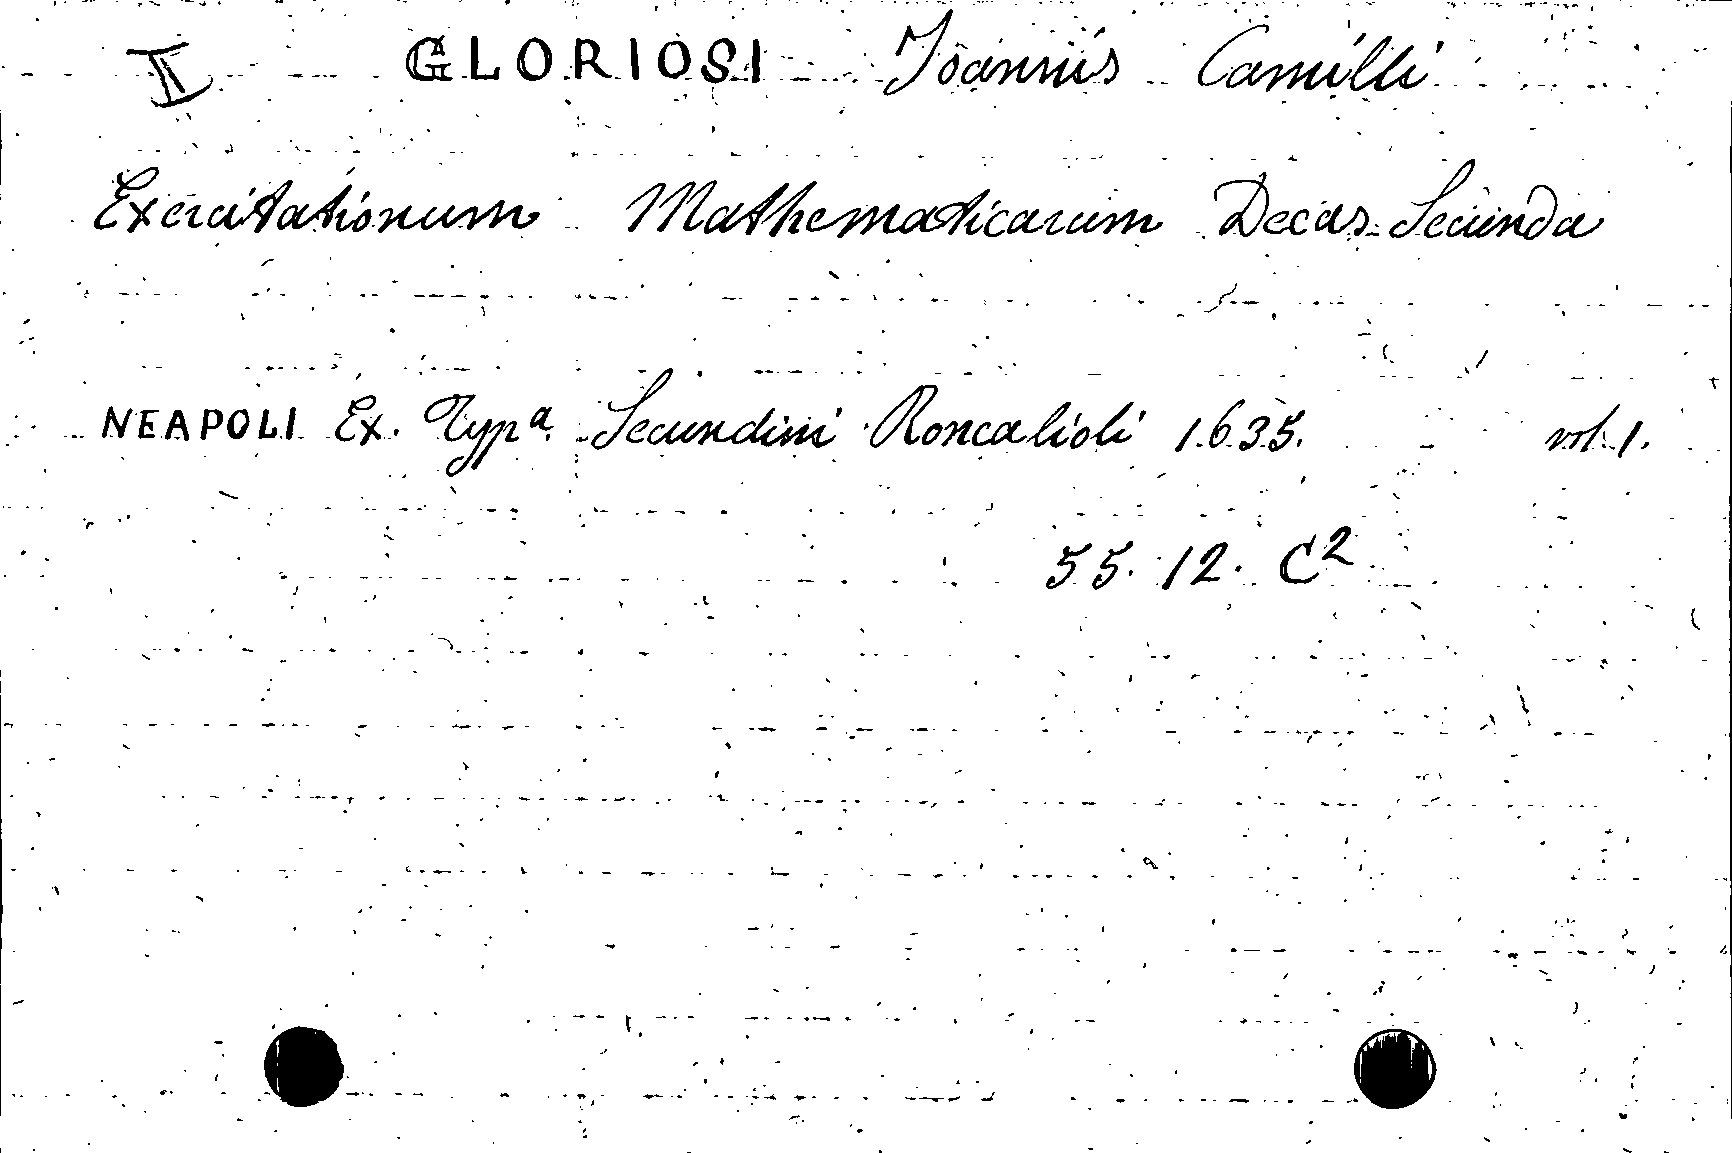 II GLORIOSI Joannis Camilli
Exercitationum Mathematicarum Decas Secunda
NEAPOLI Ex. Typª. Secundini Roncalioli 1635. vol. 1.
55. 12. C²